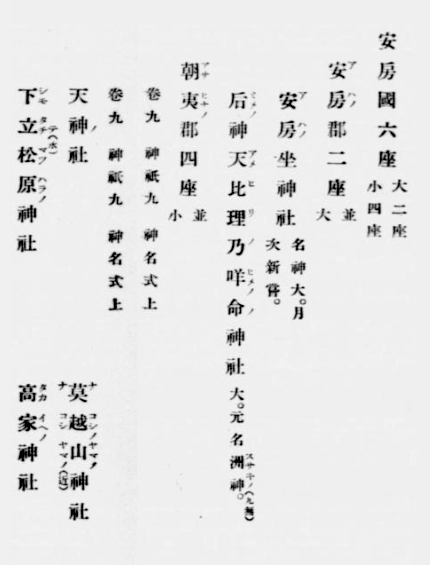 安房國六座 大二座 小四座
安房郡二座 並大
安房坐神社 名神大。月次新嘗。
后神天比理乃咩命神社 大。元名洲神。
朝夷郡四座 並小
卷九 神祇九 神名式上
卷九 神祇九 神名式上
天神社
莫越山神社
下立松原神社
高家神社